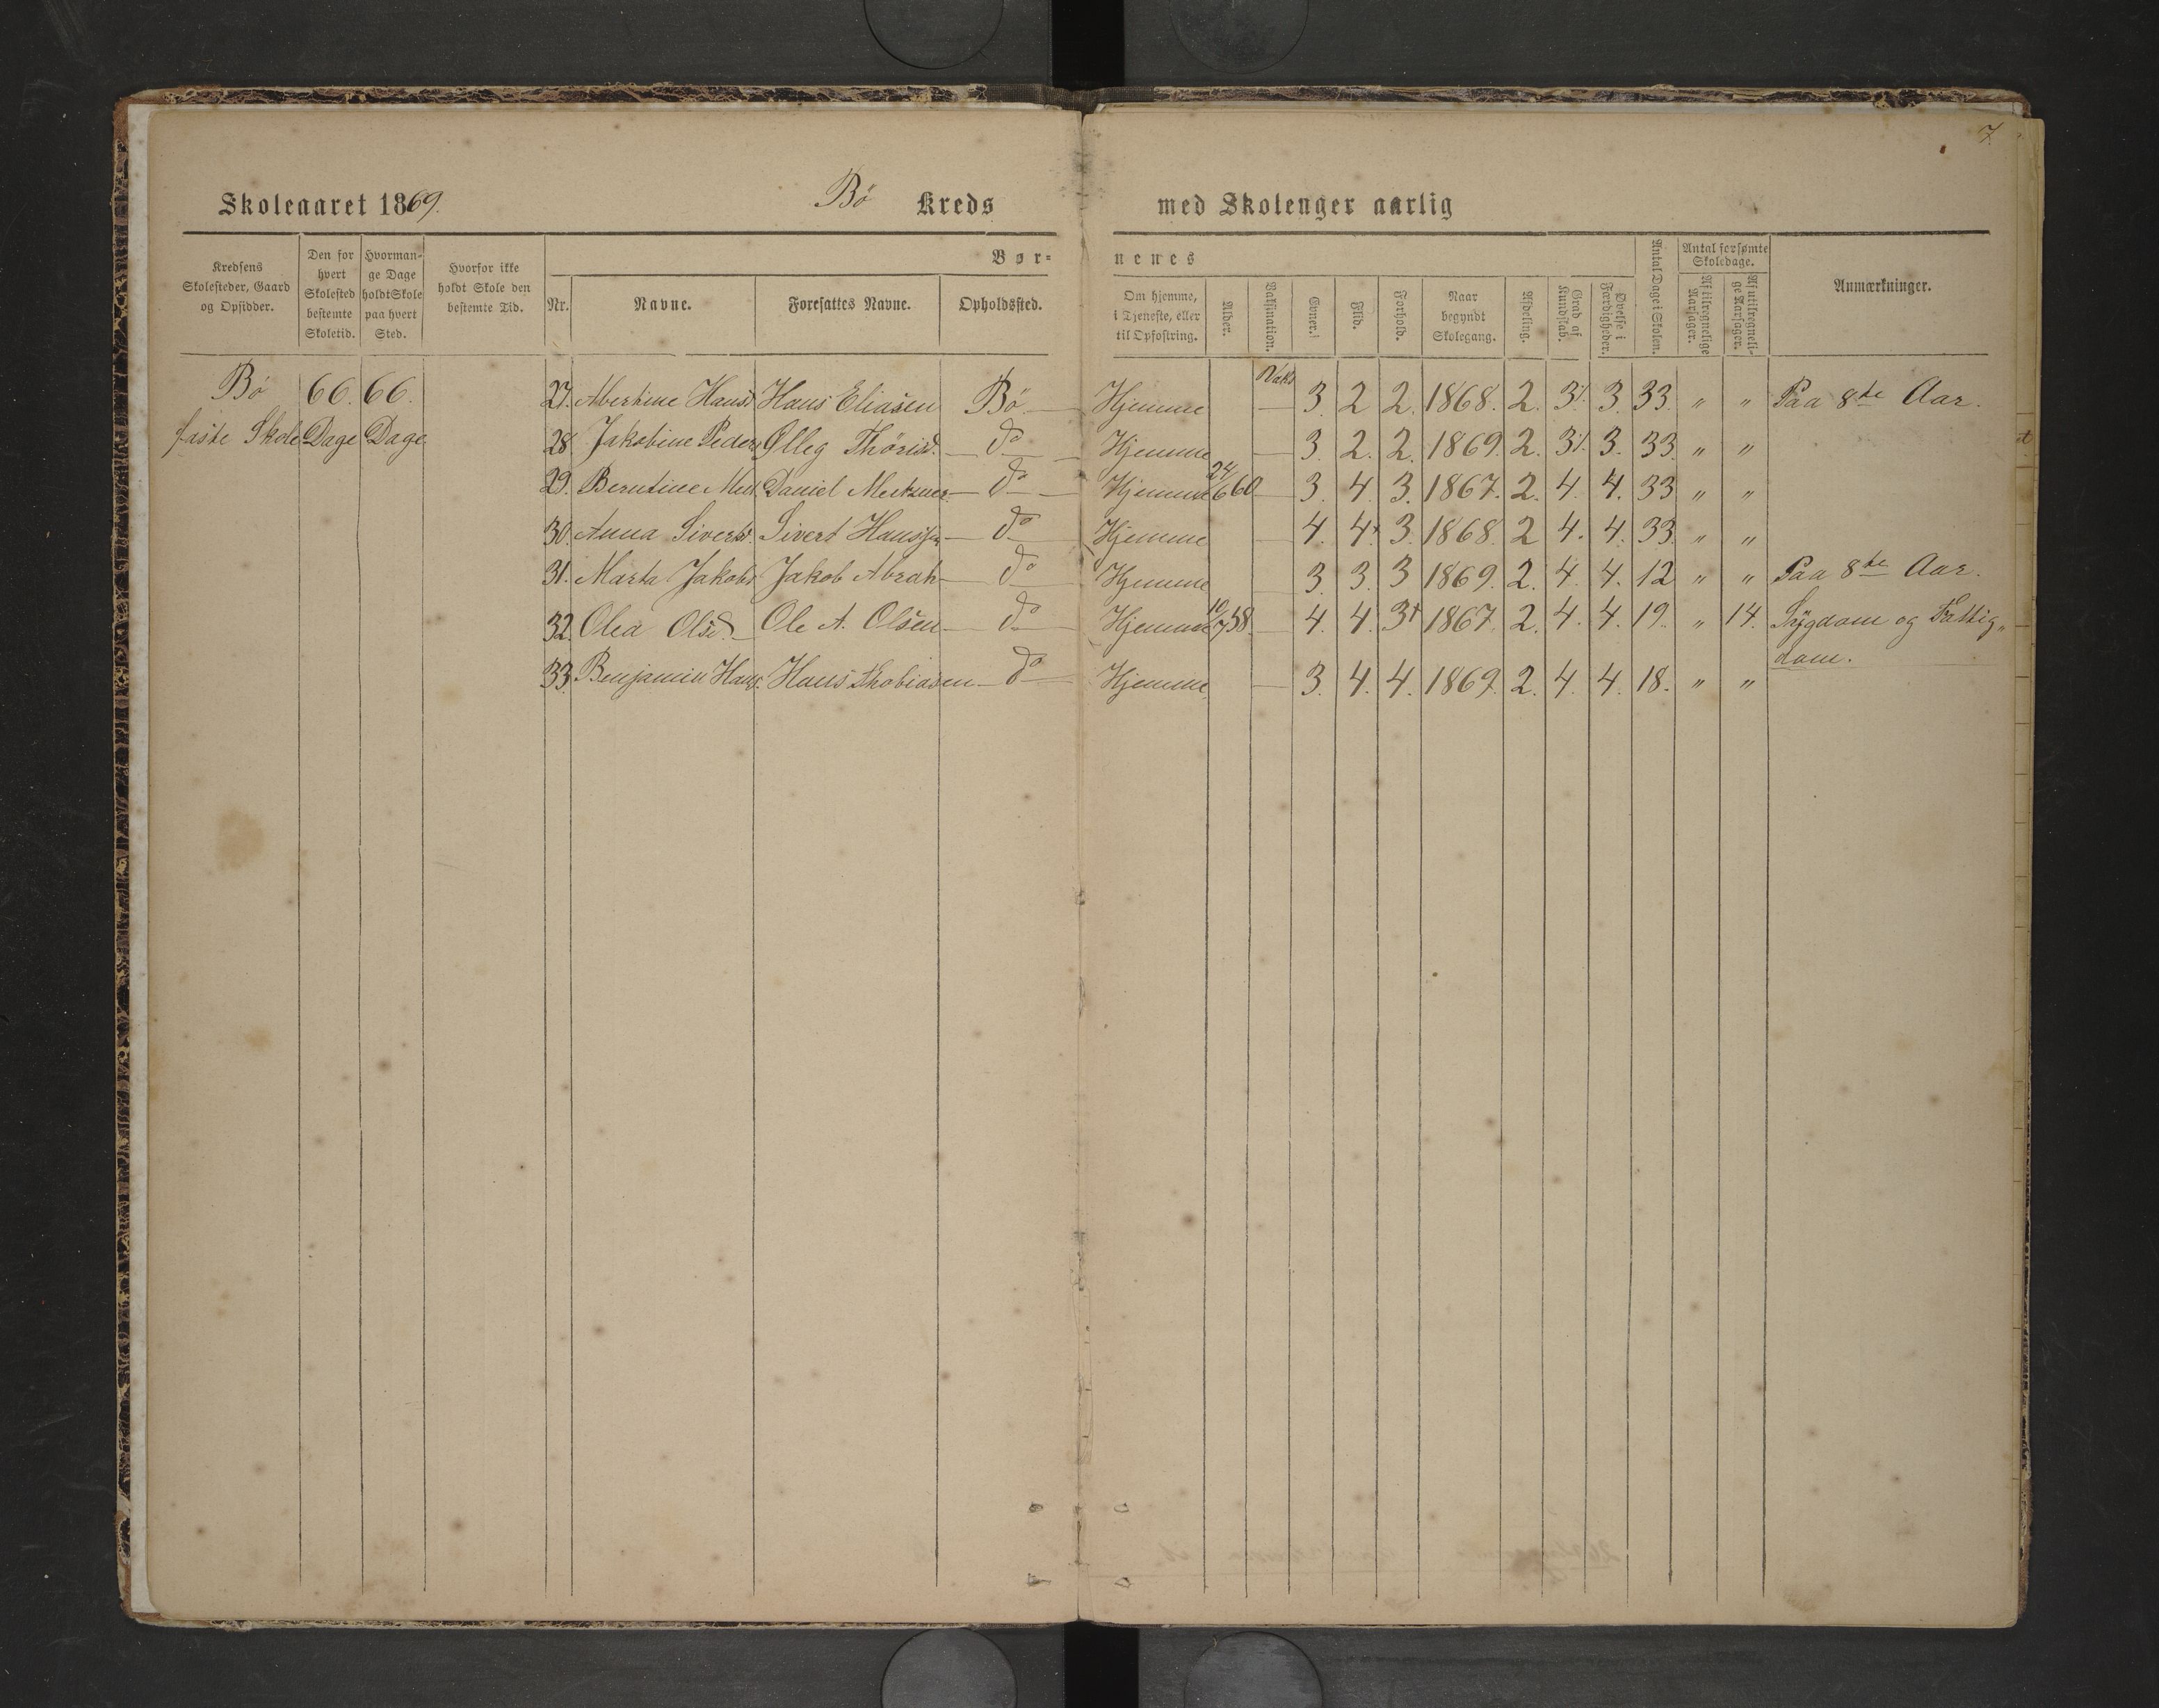 7.
Skoleaaret 1869. Bö Kreds med Skolenger aarlig
Kredsens Skolesteder, Gaard og Opsidder.
Den for hvert Skolested bestemte Skoletid.
Hvormange Dage holdt Skole paa hvert Sted.
Hvorfor ikke holdt Skole den bestemte Tid.
Bør-
nenes
Nr.
Navne.
Foresattes Navne.
Opholdssted.
Om hjemme, i Tjeneste, eller til Opfostring.
Alder.
Vaksination.
Evner.
Flid.
Forhold.
Naar begyndt Skolegang.
Afdeling.
Grad af Kundskab.
Øvelse i Færdigheder.
Antal Dage i Skolen.
Antal forsømte Skoledage.
Af tilregnelige Aarsager.
Af utilregnelige Aarsager.
Anmærkninger.
Bö 66. 66. 27. Abertine Hansd Hans Eliasen Bö. Hjemme Vaks — 3. 2 2. 1868. 2. 3⁒ 3. 33. " " Paa 8de Aar.
faste Skole Dage Dage 28. Jakobine Peders Ølleg Thörisd. — do — Hjemme — 3. 2. 2. 1869. 2. 3⁒ 3. 33. " "
29. Berntine Met. Daniel — do — Hjemme 24/6 60 — 3. 4. 3. 1867. 2. 4. 4. 33 " "
30. Anna Siverts. Sivert Hanssen — do — Hjemme — 4. 4+ 3. 1868. 2 4. 4. 33. " "
31. Marta Jakobs Jakob Abrah — do — Hjemme — 3. 3. 3 1869. 2. 4. 4. 12 " " Paa 8de Aar.
32. Olea Olsd. — Ole A. Olsen — do — Hjemme 10/7 58. — 4. 4. 3+ 1867. 2. 4. 4. 19. " 14. Sÿgdom og Fattig„
dom.
33. Benjamin Hans. Hans Thobiasen — do — Hjemme. — 3. 4. 4. 1869. 2. 4. 4. 18. " "